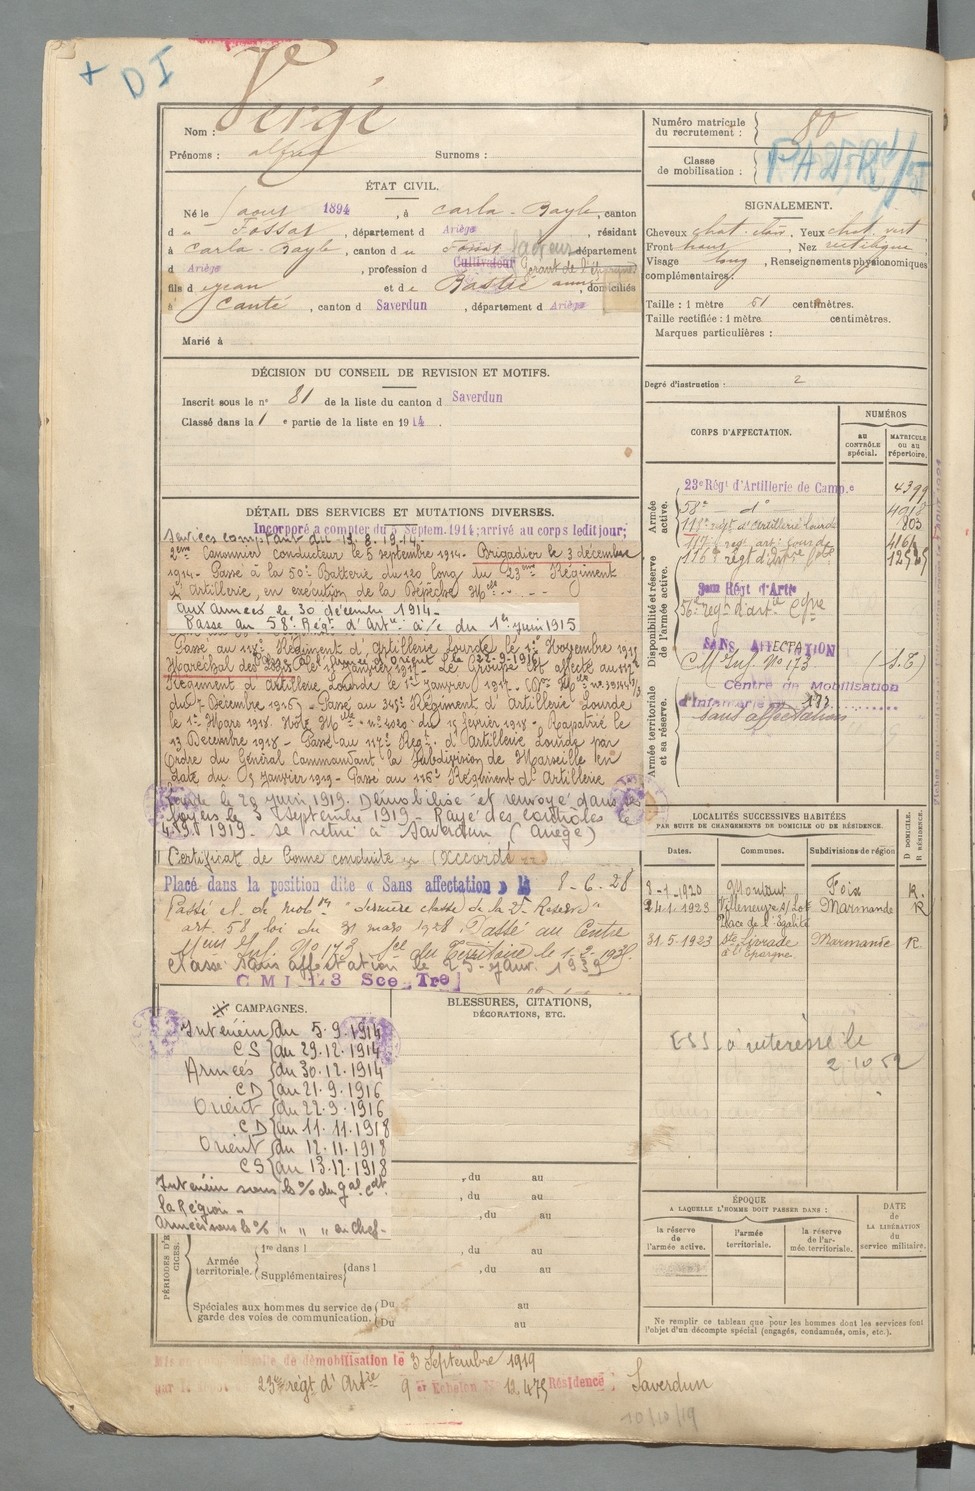 + DI
Nom : Vergé
Prénoms : alfred Surnoms :
ÉTAT CIVIL.
Né le 1 aout 1894, à Carla-Bayle, canton
du Fossat, département d Ariège, résidant
à Carla-Bayle, canton du Fossat, département
d Ariège, profession d Cultivateur Gérant de l'Epargne facteur
fils d e jean et de Bastié anne, domiciliés
à Canté, canton d Saverdun, département d Ariège
Marié à
DÉCISION DU CONSEIL DE REVISION ET MOTIFS.
Inscrit sous le n° 81 de la liste du canton d Saverdun
Classé dans la 1e partie de la liste en 1914.
DÉTAIL DES SERVICES ET MUTATIONS DIVERSES.
Incorporé a compter du 5 Septem. 1914; arrivé au corps ledit jour;
Services comptant du 13.8.1914.
2eme Canonnier conducteur le 5 septembre 1914. Brigadier le 3 décembre
1914. Passé à la 50e Batterie du 120 long du 23me Régiment
d'Artillerie, en exécution de la Dépêche Mlle
aux Armées le 30 décembre 1914.
Passé au 58e Régt d'Artie à/c du 1er juin 1915
Passé au 118e Régiment d'Artillerie Lourde le 1er Novembre 1915
Maréchal des Logis le 1er janvier 1917. Le Groupe est affecté au 112e
Régiment d'Artillerie Lourde le 1er Janvier 1917.
du 7 Décembre 1916). Passé au 345e Régiment d'Artillerie Lourde
le 1er Mars 1918. Note Mlle n° 4020 du 15 février 1918. Rapatrié le
13 Décembre 1918. Passé au 117e Régt d'Artillerie Lourde par
Ordre du Général Commandant la Subdivision de Marseille en
date du 3 Janvier 1919. Passé au 116e Régiment d'Artillerie
lourde le 20 juin 1919. Démobilisé et renvoyé dans ses
foyers le 3 Septembre 1919. Rayé des contrôles le
4.9.1919. Se retire à Saverdun (Ariège)
Certificat de bonne conduite "Accordé"
Placé dans la position dite « Sans affectation » le 8-6-28
Passé et. de mobon "dernière classe de la 2e Réserve"
art. 58 loi du 31 mars 1928. Passé au Centre
Mon Inf. No 173 Sce du Territoire le 1-2-193
Classé sans affectation le 25 janv. 1939
C M I 173 Sce Tre
CAMPAGNES.
Intérieur du 5.9.1914
CS au 29.12.1914
Armées du 30.12.1914
CD au 21.9.1916
Orient du 22.9.1916
CD au 11.11.1918
Orient du 12.11.1918
CS au 13.12.1918
Intérieur sous les % du gal cdt
la Région.
Armées sous les % " " " en chef.
BLESSURES, CITATIONS,
DÉCORATIONS, ETC.
, du au
, du au
, du au
Armée territoriale. 1re dans l , du au
Supplémentaires dans l , du au
Spéciales aux hommes du service de garde des voies de communication. Du au
Du au
Numéro matricule du recrutement : 80
Classe de mobilisation :
SIGNALEMENT.
Cheveux chat. clair. Yeux chat. vert
Front moyen, Nez rectiligne,
Visage long, Renseignements physionomiques
complémentaires
Taille : 1 mètre 61 centimètres.
Taille rectifiée : 1 mètre centimètres.
Marques particulières :
Degré d'instruction : 2
CORPS D'AFFECTATION.
NUMÉROS
au CONTRÔLE spécial.
MATRICULE ou au répertoire.
Armée active.
23e Régt d'Artillerie de Camp.e 4399
58e do 4018
118e regt d'artillerie lourde 803
117e regt art. lourde 4161
116e regt d'Artie
Disponibilité et réserve de l'armée active.
3em Régt d'Artie
56e regt d'artie Cgne
SANS AFFECTATION
C M Inf. No 173 (S.T.)
Armée territoriale et sa réserve.
Centre de Mobilisation
d'Infanterie no 173
sans affectation
LOCALITÉS SUCCESSIVES HABITÉES
PAR SUITE DE CHANGEMENTS DE DOMICILE OU DE RÉSIDENCE.
Dates. Communes. Subdivisions de région D DOMICILE. R RÉSIDENCE.
8-1-1920 Montaut Foix R.
24.1.1923 Villeneuve s/Lot Marmande R
Place de l'égalité
31.5.1923 Ste Livrade Marmande R
à l'Epargne
ESS à intéressé le
2.10.52
ÉPOQUE
A LAQUELLE L'HOMME DOIT PASSER DANS :
la réserve de l'armée active.
l'armée territoriale.
la réserve de l'armée territoriale.
DATE de LA LIBÉRATION du service militaire.
Ne remplir ce tableau que pour les hommes dont les services font
l'objet d'un décompte spécial (engagés, condamnés, omis, etc.).
de démobilisation le 3 Septembre 1919
par le dépôt 23e regt d'Artie 9 er Echelon No 12.475 Résidence : Saverdun
10/10/19